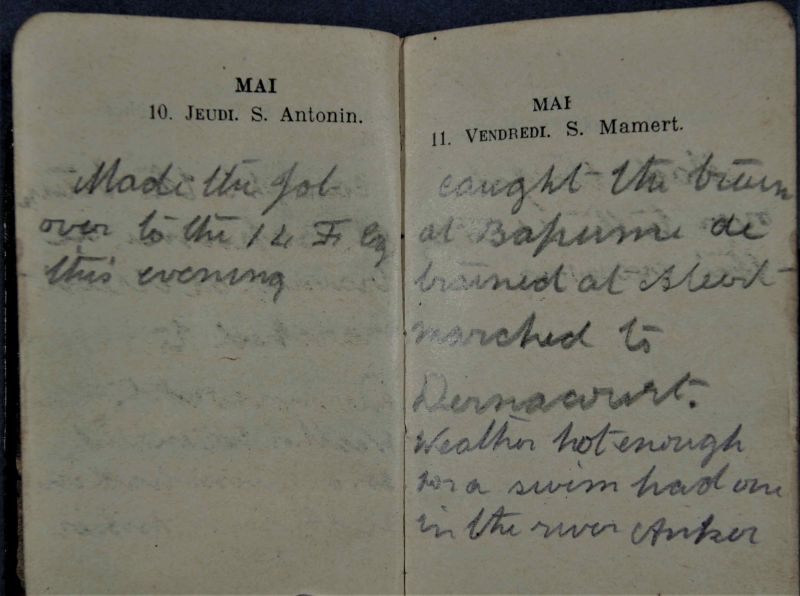 MAI
10. JEUDI. S. Antonin.
Made the Job
over to the 14 F Coy
this evening
MAI
11. VENDREDI. S. Mamert.
caught the train
at Bapume de
trained at Albert
marched to
Dernacourt.
Weather hot enough
for a swim had one
in the river Anker